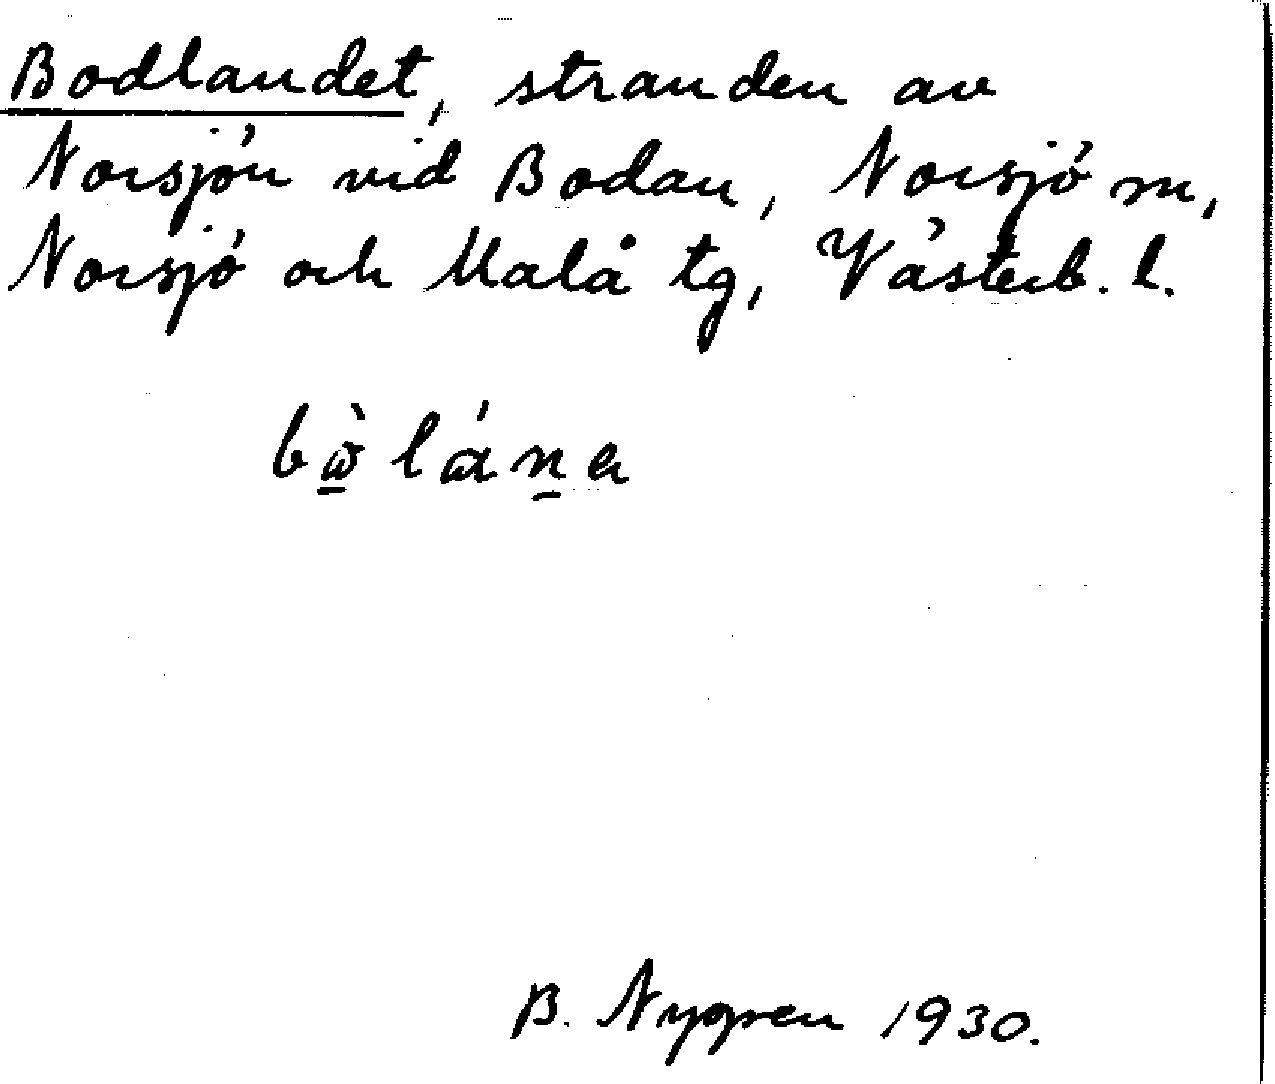 Bodlandet, stranden av
Norsjön vid Bodan, Norsjö sn,
Norsjö och Malå tg, Västerb. l.
B. Nygren 1930.